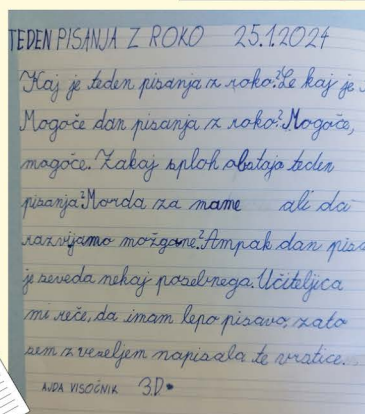 TEDEN PISANJA Z ROKO 25.1.2024
Kaj je teden pisanja z roko? Le kaj je
Mogoče dan pisanja z roko? Mogoče,
mogoče. Zakaj sploh obstaja teden
pisanja? Morda za mame ali da
razvijamo možgane? Ampak dan pisa
je seveda nekaj posebnega. Učiteljica
mi reče, da imam lepo pisavo, zato
sem z veseljem napisala te vrstice.
AJDA VISOČNIK 3.D